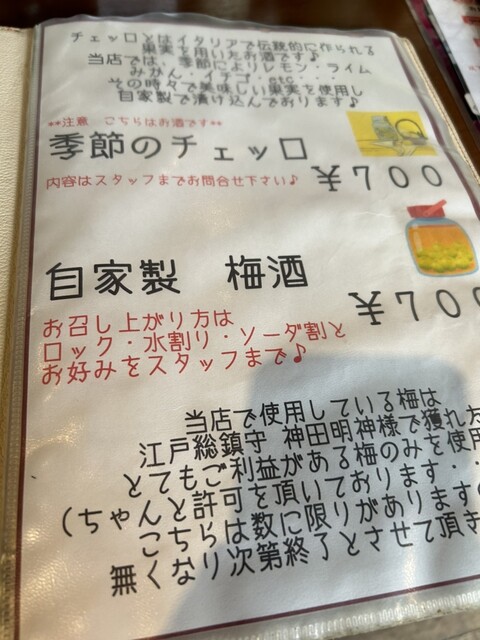 チェッロとはイタリアで伝統的に作られる
果実を用いたお酒です♪
当店では、季節によりレモン・ライム
みかん・イチゴ・etc・・・
その時々で美味しい果実を使用し
自家製で漬け込んでおります♪
**注意 こちらはお酒です**
季節のチェッロ
¥700
内容はスタッフまでお問合せ下さい♪
自家製 梅酒
¥700
お召し上がり方は
ロック・水割り・ソーダ割と
お好みをスタッフまで♪
当店で使用している梅は
江戸総鎮守 神田明神様で獲れた
とてもご利益がある梅のみを使用
(ちゃんと許可を頂いております・・
こちらは数に限りがあります
無くなり次第終了とさせて頂き